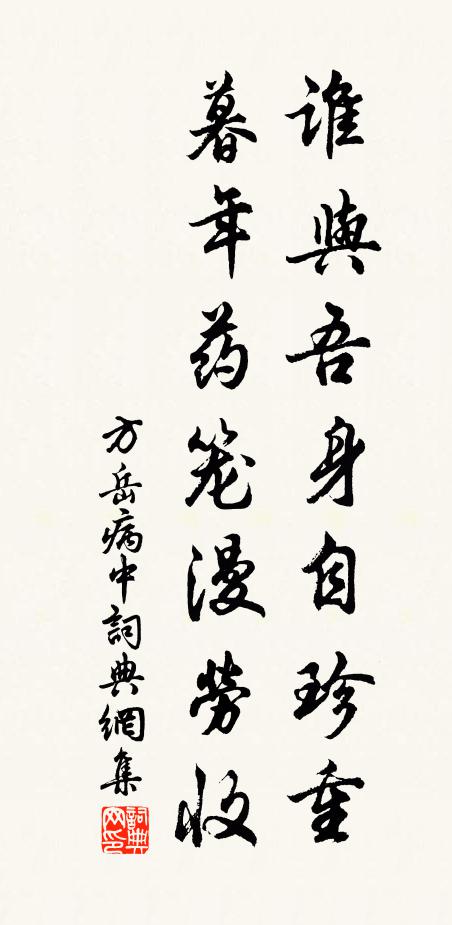 誰與吾身自珍重
暮年药笼漫勞收
方岳病中詞典網集
詞典网印